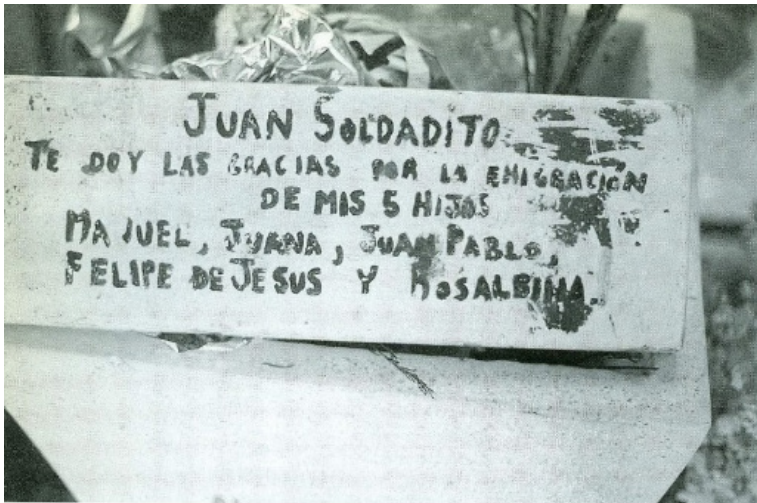 JUAN SOLDADITO
TE DOY LAS GRACIAS POR LA EMIGRACIÓN
DE MIS 5 HIJOS
MANUEL, JUANA, JUAN PABLO,
FELIPE DE JESUS Y ROSALBINA.